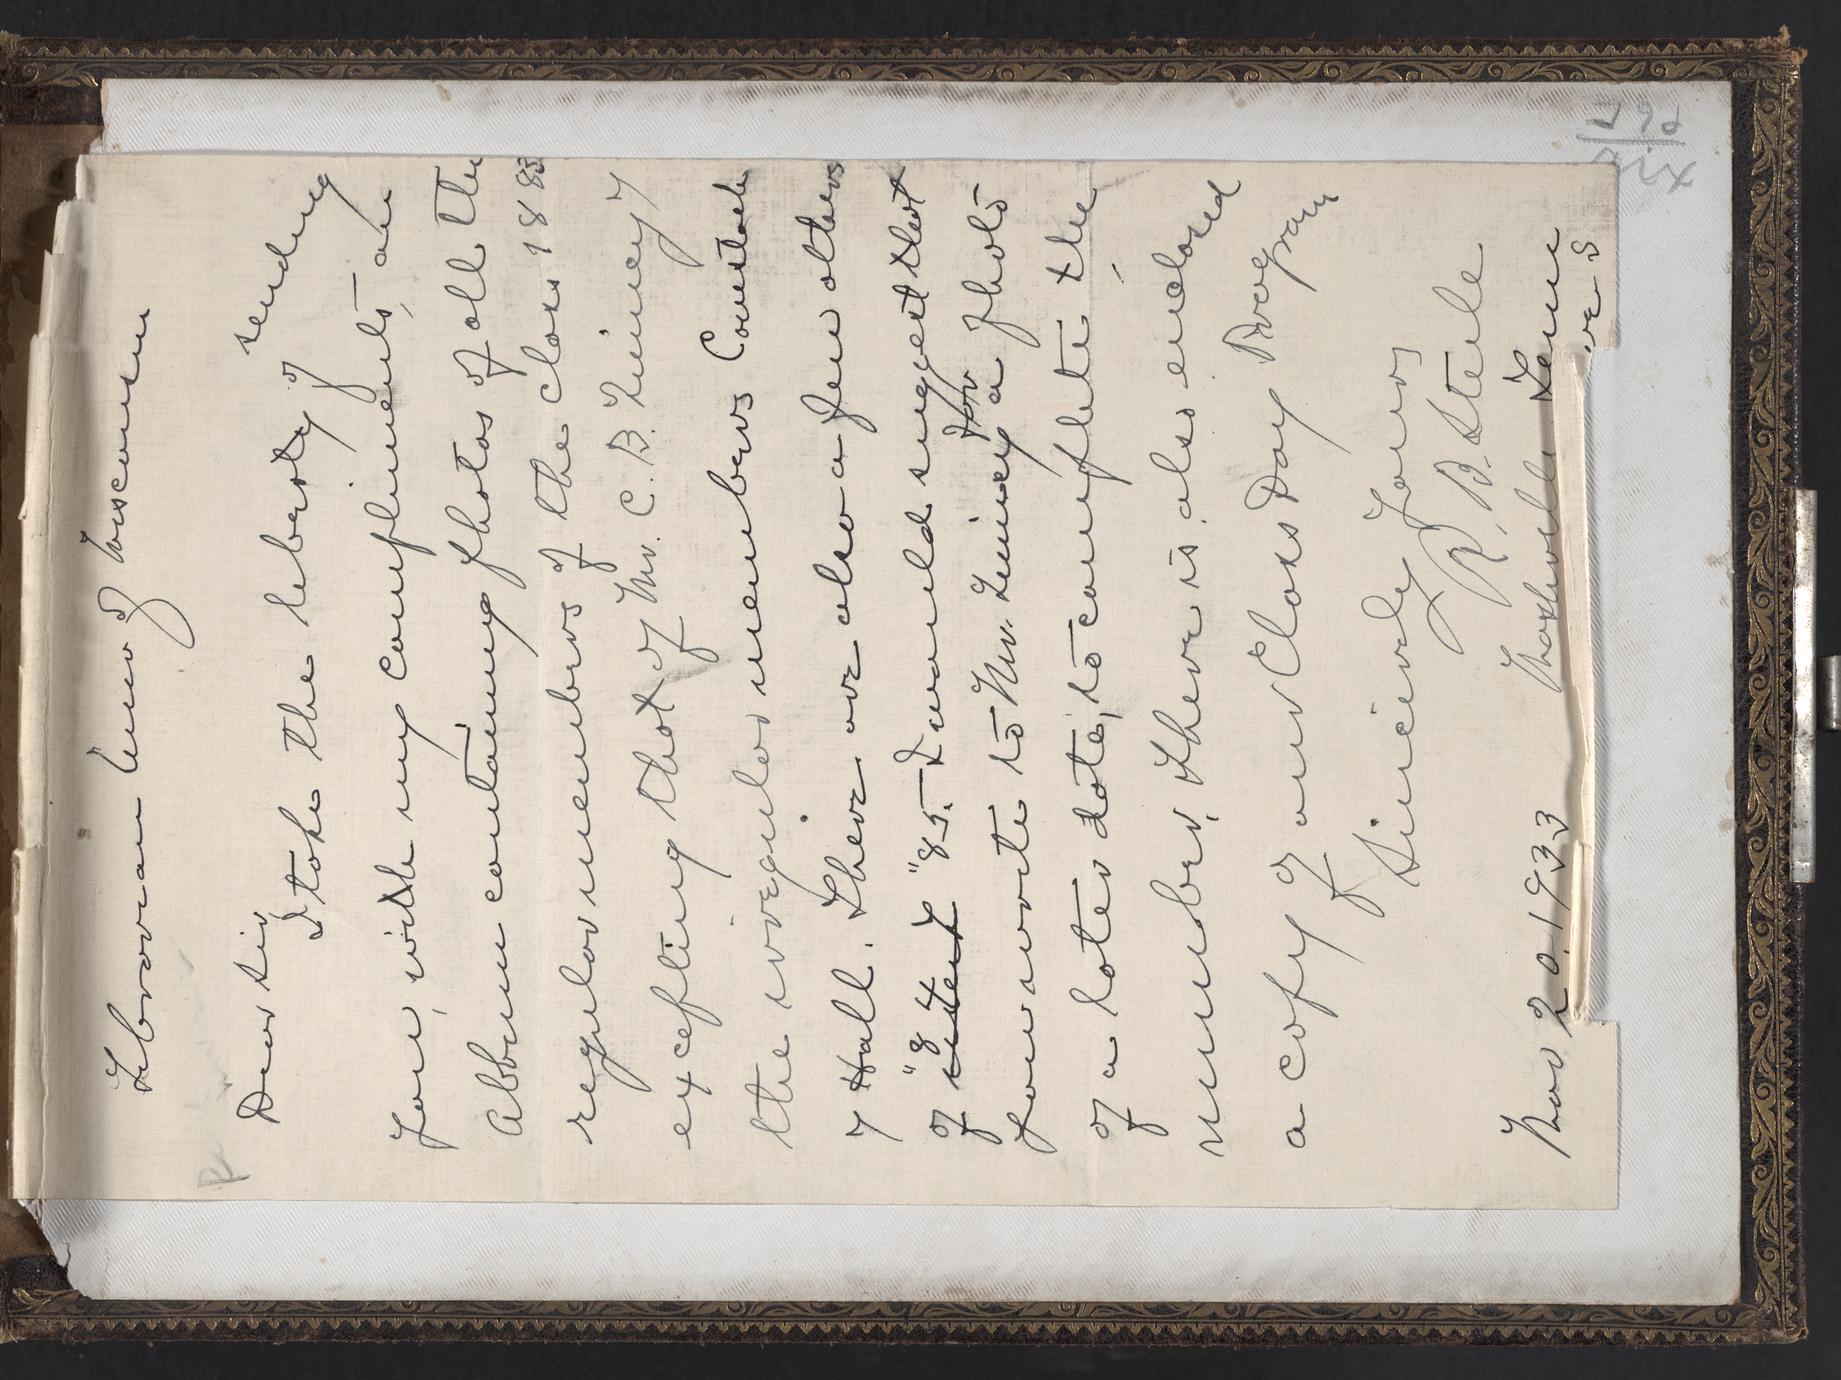 Librarian Univ of Wisconsin
Dear Sir
I take the liberty of sending
you, with my compliments, an
Album containing photos of all the
regular members of the class 1883
excepting that of Mr. C. B.
the irregular members Comstock
& Hall. There are also a few others
of "8 "85. I would suggest that
you write to Mr. for a photo
of a later date, to complete the
number. There is also enclosed
a copy of our Class Day Program
Sincerely Yours
R. B. Steele
Nov 20, 1933 Nashville Tenn